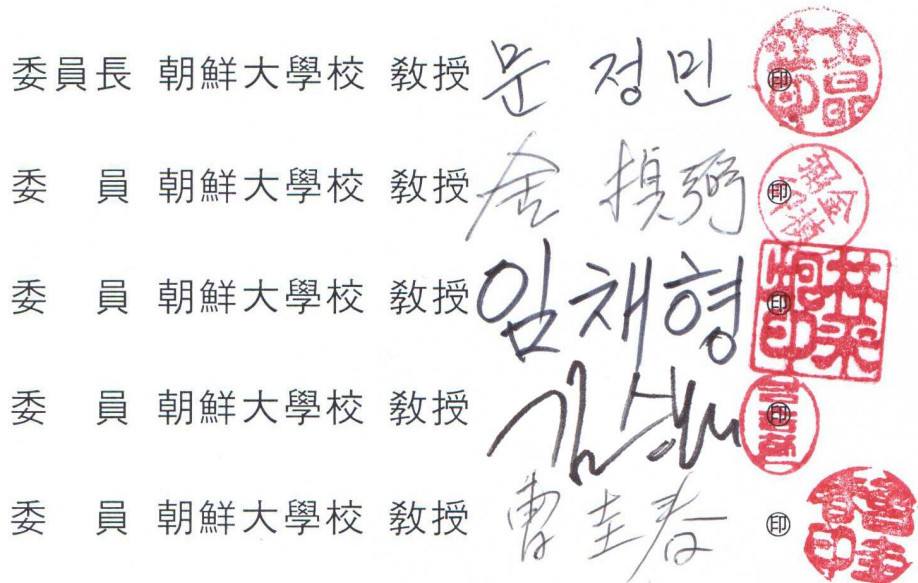 委員長 朝鮮大學校 敎授 문 정민 ㊞
委 員 朝鮮大學校 敎授 ㊞
委 員 朝鮮大學校 敎授 임채형 ㊞
委 員 朝鮮大學校 敎授 김 ㊞
委 員 朝鮮大學校 敎授 曺圭春 ㊞